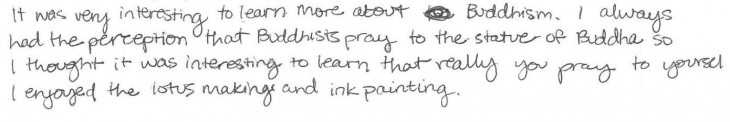 It was very interesting to learn more about Buddhism. I always
had the perception that Buddhists pray to the statue of Buddha so
I thought it was interesting to learn that really you pray to yoursel
I enjoyed the lotus making and ink painting.